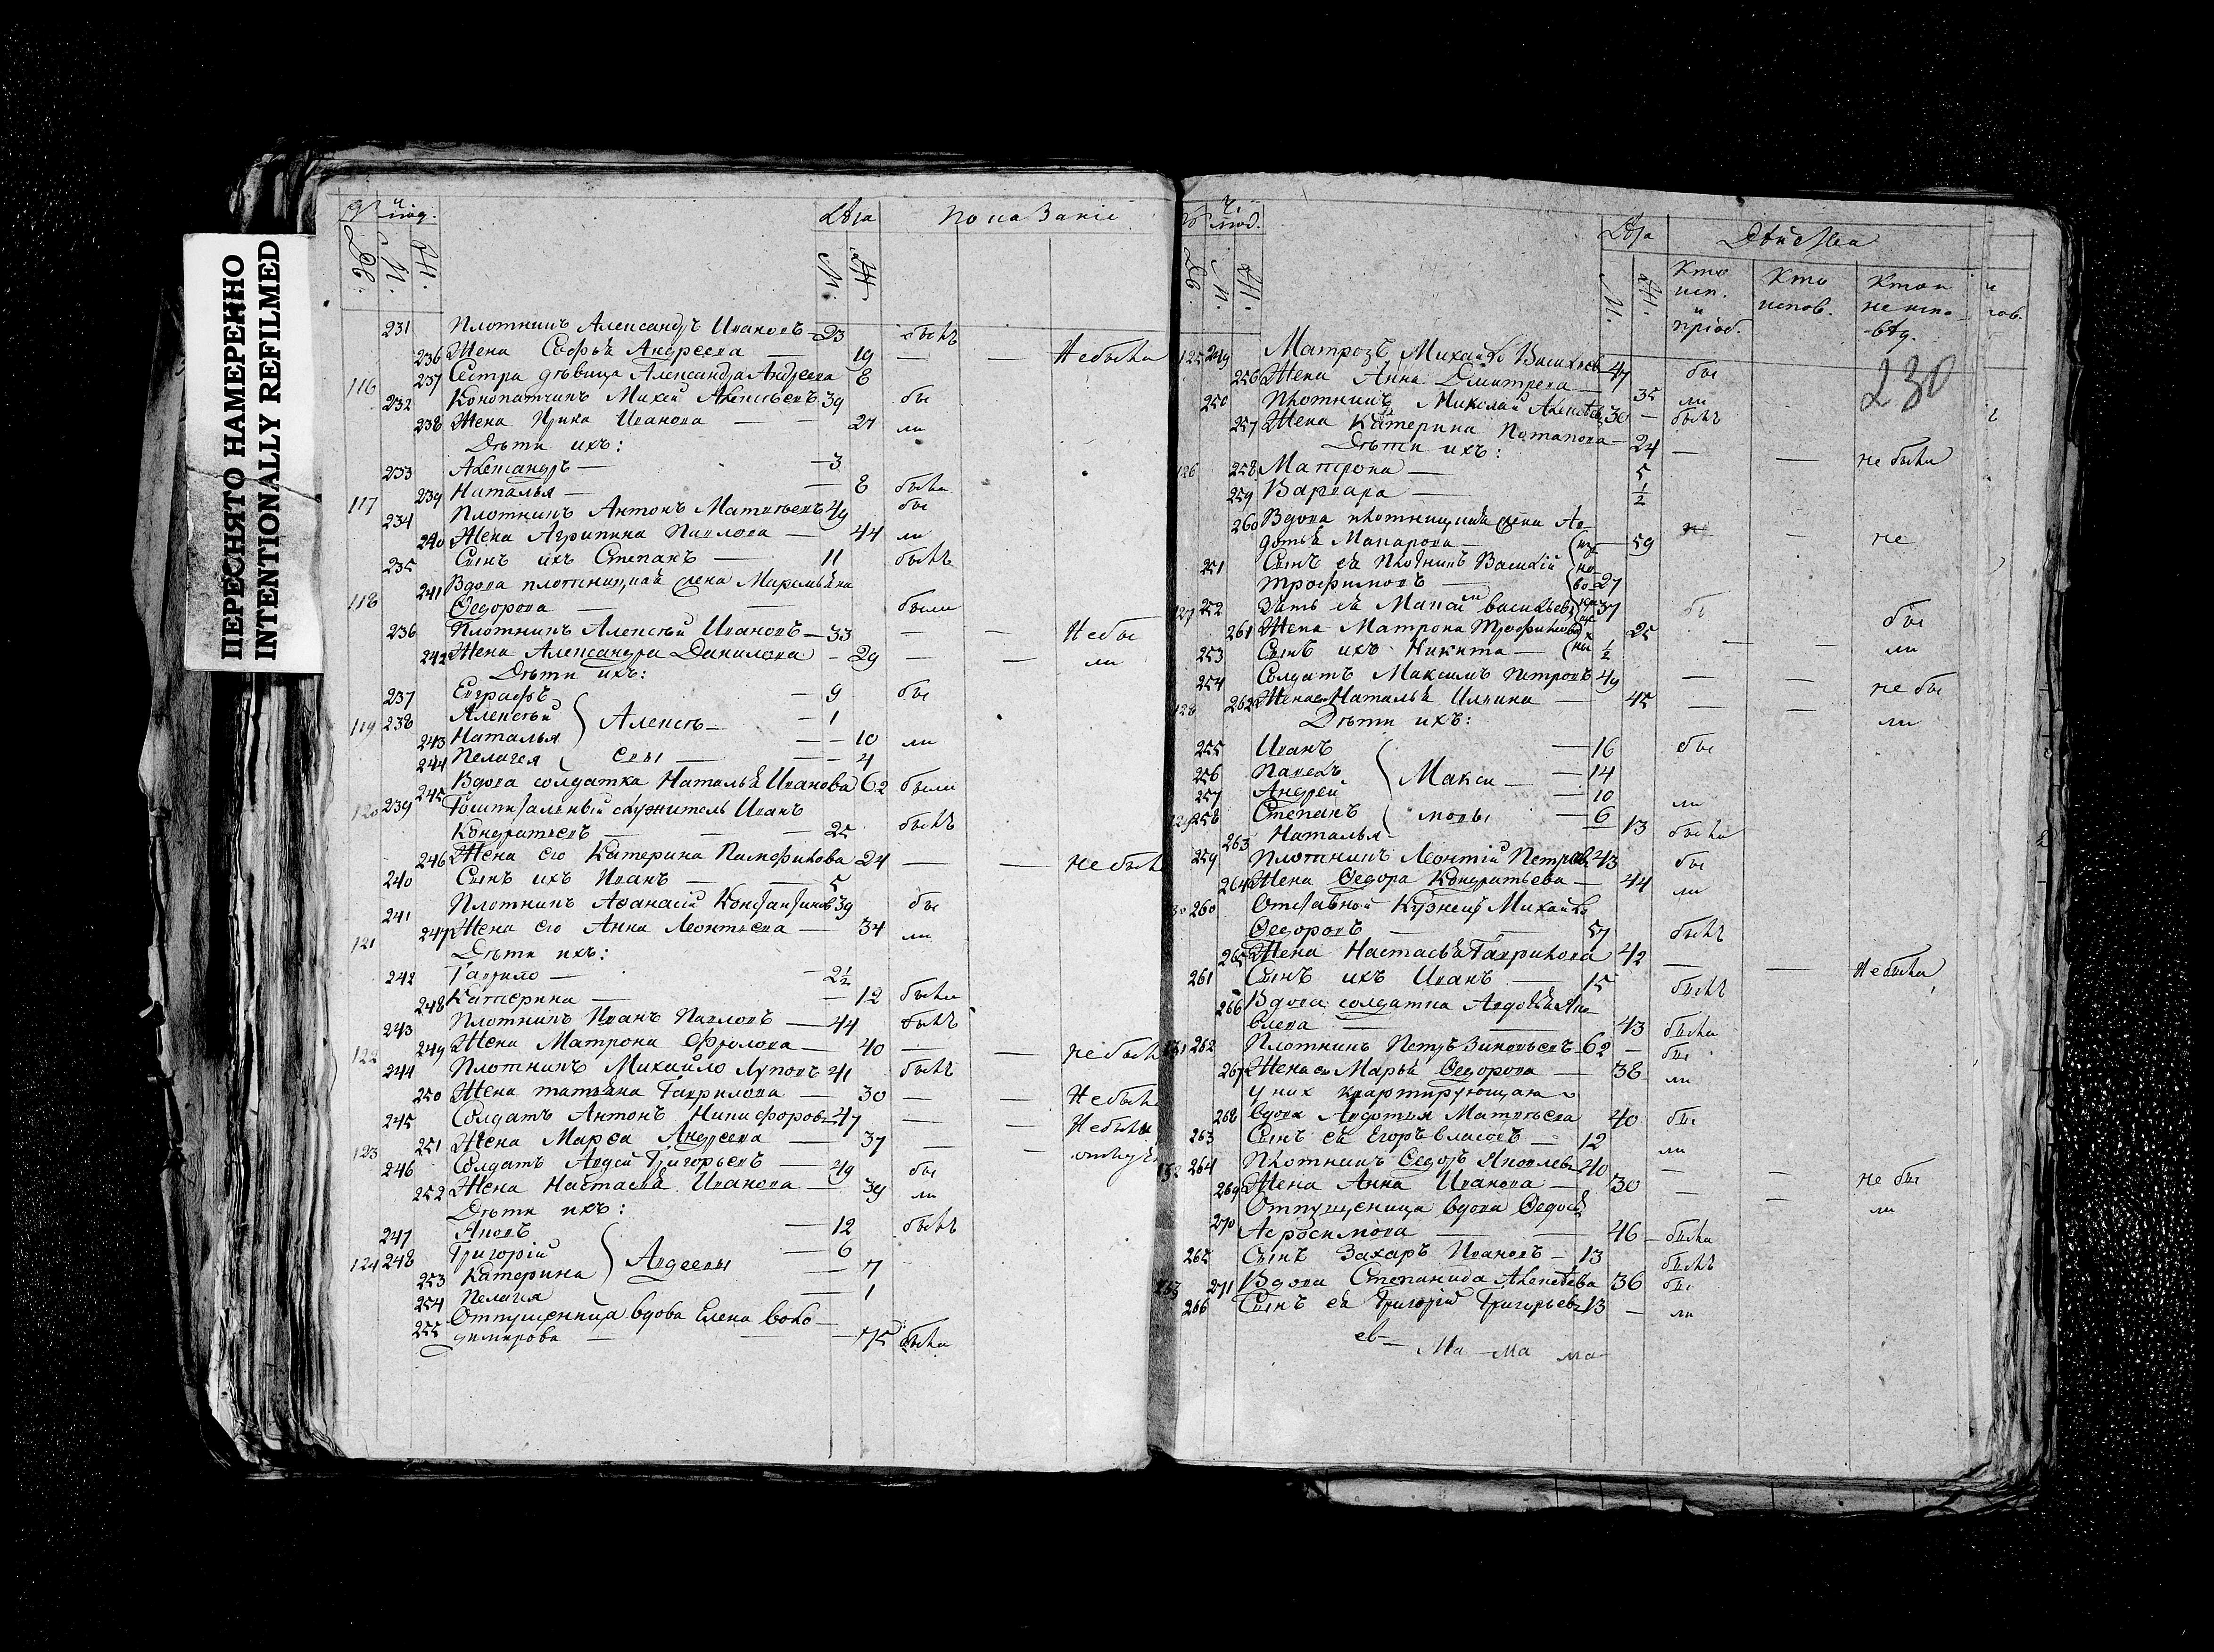 ПЕРЕСНЯТО НАМЕРЕННО
INTENTIONALLY REFILMED
Лѣта Показаніе
М. Ж. М. Ж.
231 Плотникъ Александръ Ивановъ — 23 былъ
236 Жена Софья Андреева — 19 — — Небыла
237 Сестра дѣвица Александра Андреева 8
116 232 Конопатчикъ Михей Алексѣевъ 39 бы
238 Жена Ирина Иванова — 27 ли
Дѣти ихъ:
233 Александръ — 3
239 Наталья — 8 была
117 234 Плотникъ Антонъ Матвѣевъ 49 бы
240 Жена Агрипина Павлова — 44 ли
235 Сынъ ихъ Степанъ — 11 былъ
241 Вдова плотницкая жена
118 Ѳедорова — были
236 Плотникъ Алексѣй Ивановъ — 33 — — Небы
242 Жена Александра Данилова — 29 — — ли
Дѣти ихъ:
237 Евграфъ — 9 бы
119 238 Алексѣй } Алексѣ — 1
243 Наталья — 10 ли
244 Пелагея евы — 4
245 Вдова солдатка Наталья Иванова 62 были
120 239 Гошпитальный служитель Иванъ
Кондратьевъ — 25 былъ
246 Жена его Катерина Памфилова 24 — — не был
240 Сынъ ихъ Иванъ — 5
241 Плотникъ Аѳанасій Константиновъ 39 бы
121 247 Жена его Анна Леонтьева — 34 ли
Дѣти ихъ:
242 Гаврило — 2½
248 Катерина — 12 была
243 Плотникъ Иванъ Павловъ — 44 былъ
122 249 Жена Матрона Фролова — 40 — — не был
244 Плотникъ Михайло Луповъ 41 былъ
250 Жена татьяна Гаврилова — 30 — — Небыл
245 Солдатъ Антонъ Никифоровъ — 47 — — Небыли
123 251 Жена Марѳа Андреева — 37 — —
246 Солдатъ Авдей Григорьевъ — 49 бы
252 Жена Настасья Иванова — 39 ли
Дѣти ихъ:
247 Яковъ — 12 былъ
124 248 Григорій } Авдеевы — 6
253 Катерина — 7
254 Пелагея — 1
255 Отпущенница вдова Елена Воло-
димирова — 75 была
Лѣта Дѣйства
М. Ж. М. Ж. Кто исп. и пріоб. Кто испов. Кто и не испо-вѣд.
230
125 249 Матрозъ Михайло Васильевъ 47 бы
256 Жена Анна Дмитрева — 35 ли
250 Плотникъ Миколай Алексѣевъ 30 — былъ
257 Жена Катерина Потапова — 24 — — не была
Дѣти ихъ:
126 258 Матрона — 5
259 Варвара — ½
260 Вдова плотницкая жена Ав-
дотья Макарова — 59 — не
251 Сынъ ея Плотникъ Василій
трофимовъ — 27
127 252 Зять ея васильевъ 37 бы
261 Жена Матрона Трофимова 25 — — ли
253 Сынъ ихъ Никита — ½
254 Солдатъ Максимъ Петровъ 49 — — не бы
128 262 Жена его Наталья Ильина — 45 — — ли
Дѣти ихъ:
255 Иванъ — 16 бы
256 Павелъ } Макси — 14
257 Андрей — 10
129 258 Степанъ мовы — 6 ли
263 Наталья — 13 была
259 Плотникъ Леонтій Петровъ 43 бы
264 Жена Ѳедора Кондратьева — 44 ли
130 260 Отставной Кузнецъ Михайло
Ѳедоровъ — 57 былъ
265 Жена Настасья Гаврилова 42 — — Небыла
261 Сынъ ихъ Иванъ — 15 былъ
266 Вдова солдатка Авдотья Яко-
влева — 43 была
131 262 Плотникъ Петръ Зиновьевъ 62 — бы
267 Жена его Марья Ѳедорова — 38 ли
у них квартирующая
268 вдова Авдотья Матвѣева 40 бы
263 Сынъ ея Егоръ власовъ — 12 ли
132 264 Плотникъ Ѳедоръ Яковлевъ 40 — — не бы
269 Жена Анна Иванова — 30 — — ли
Отпущеница вдова Ѳедосья
270 — 46 — была
265 Сынъ Захаръ Ивановъ — 13 былъ
133 271 Вдова Степанида Алексѣева 36 бы
266 Сынъ ея Григорій Григорьевъ 13 — ли